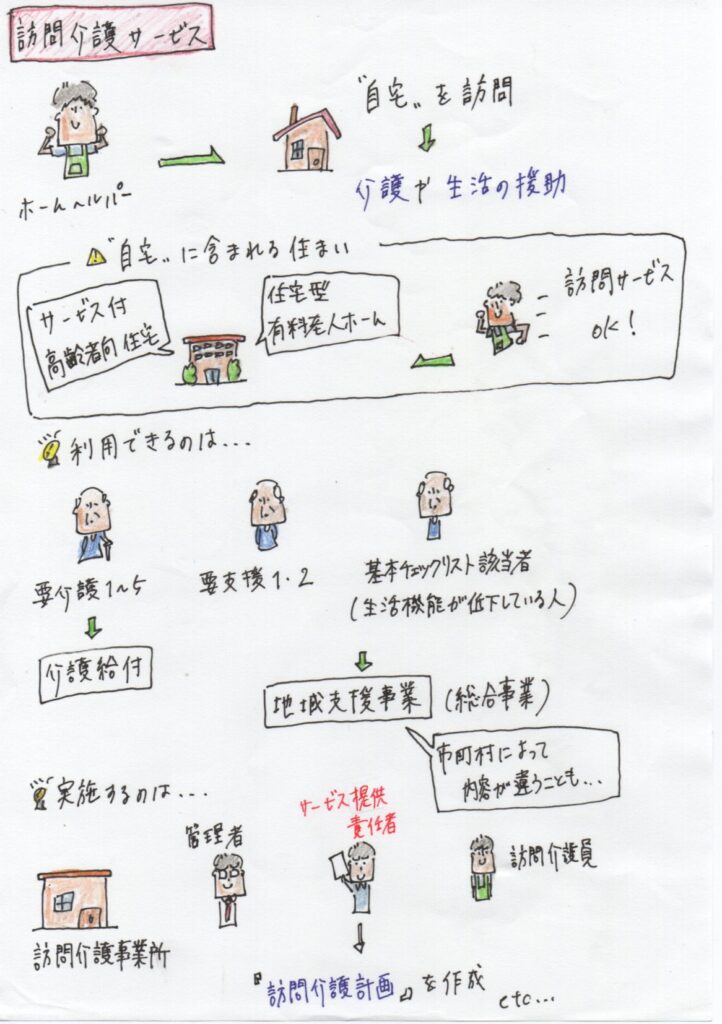 訪問介護サービス
ホームヘルパー
“自宅„を訪問
介護や生活の援助
“自宅„に含まれる住まい
サービス付
高齢者向住宅
住宅型
有料老人ホーム
訪問サービス
OK!
利用できるのは...
要介護1~5
要支援1・2
基本チェックリスト該当者
(生活機能が低下している人)
介護給付
地域支援事業 (総合事業)
市町村によって
内容が違うことも...
実施するのは...
訪問介護事業所
管理者
サービス提供
責任者
訪問介護員
『訪問介護計画』を作成
etc...